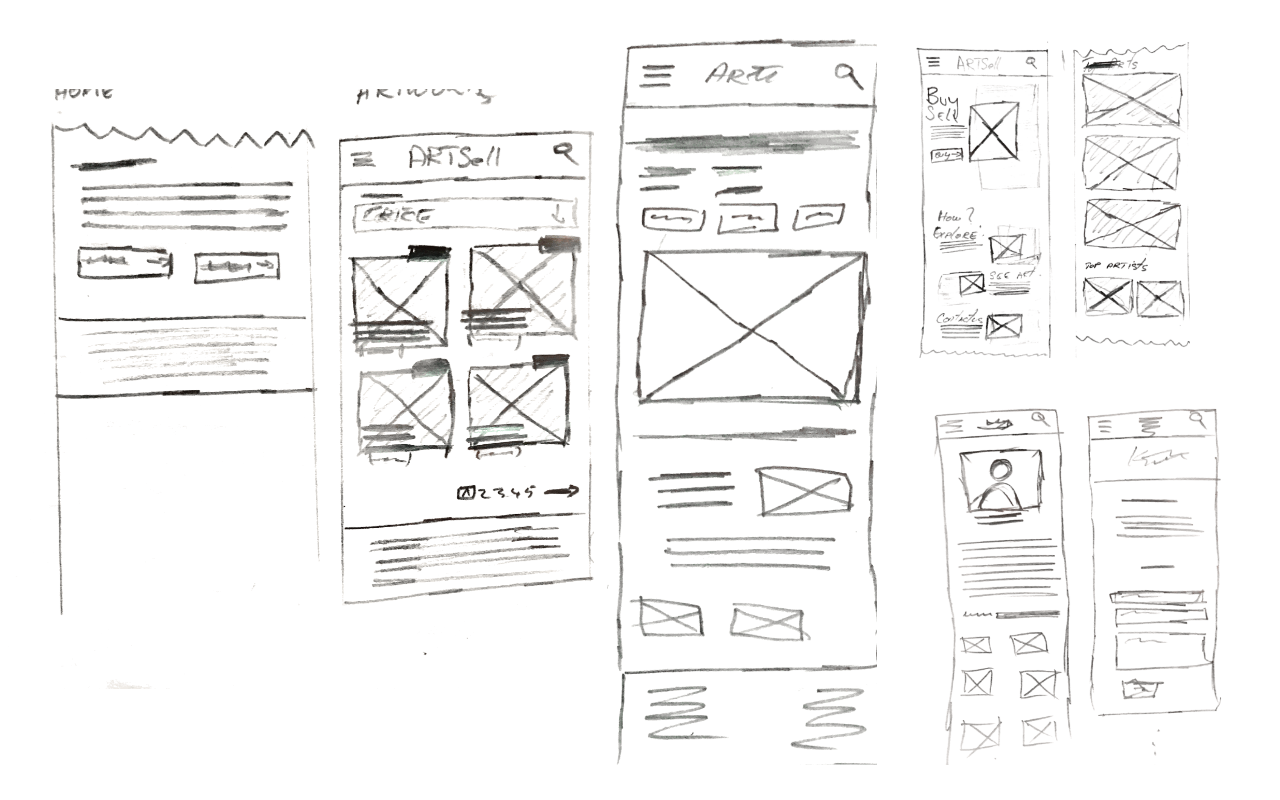 HOME
ARTWORKS
ARTSell
PRICE
1 2 3 4 5
ARTSell
Buy
Sell
Buy
How?
Explore
SEE ART
Contact us
Top Arts
TOP ARTISTS